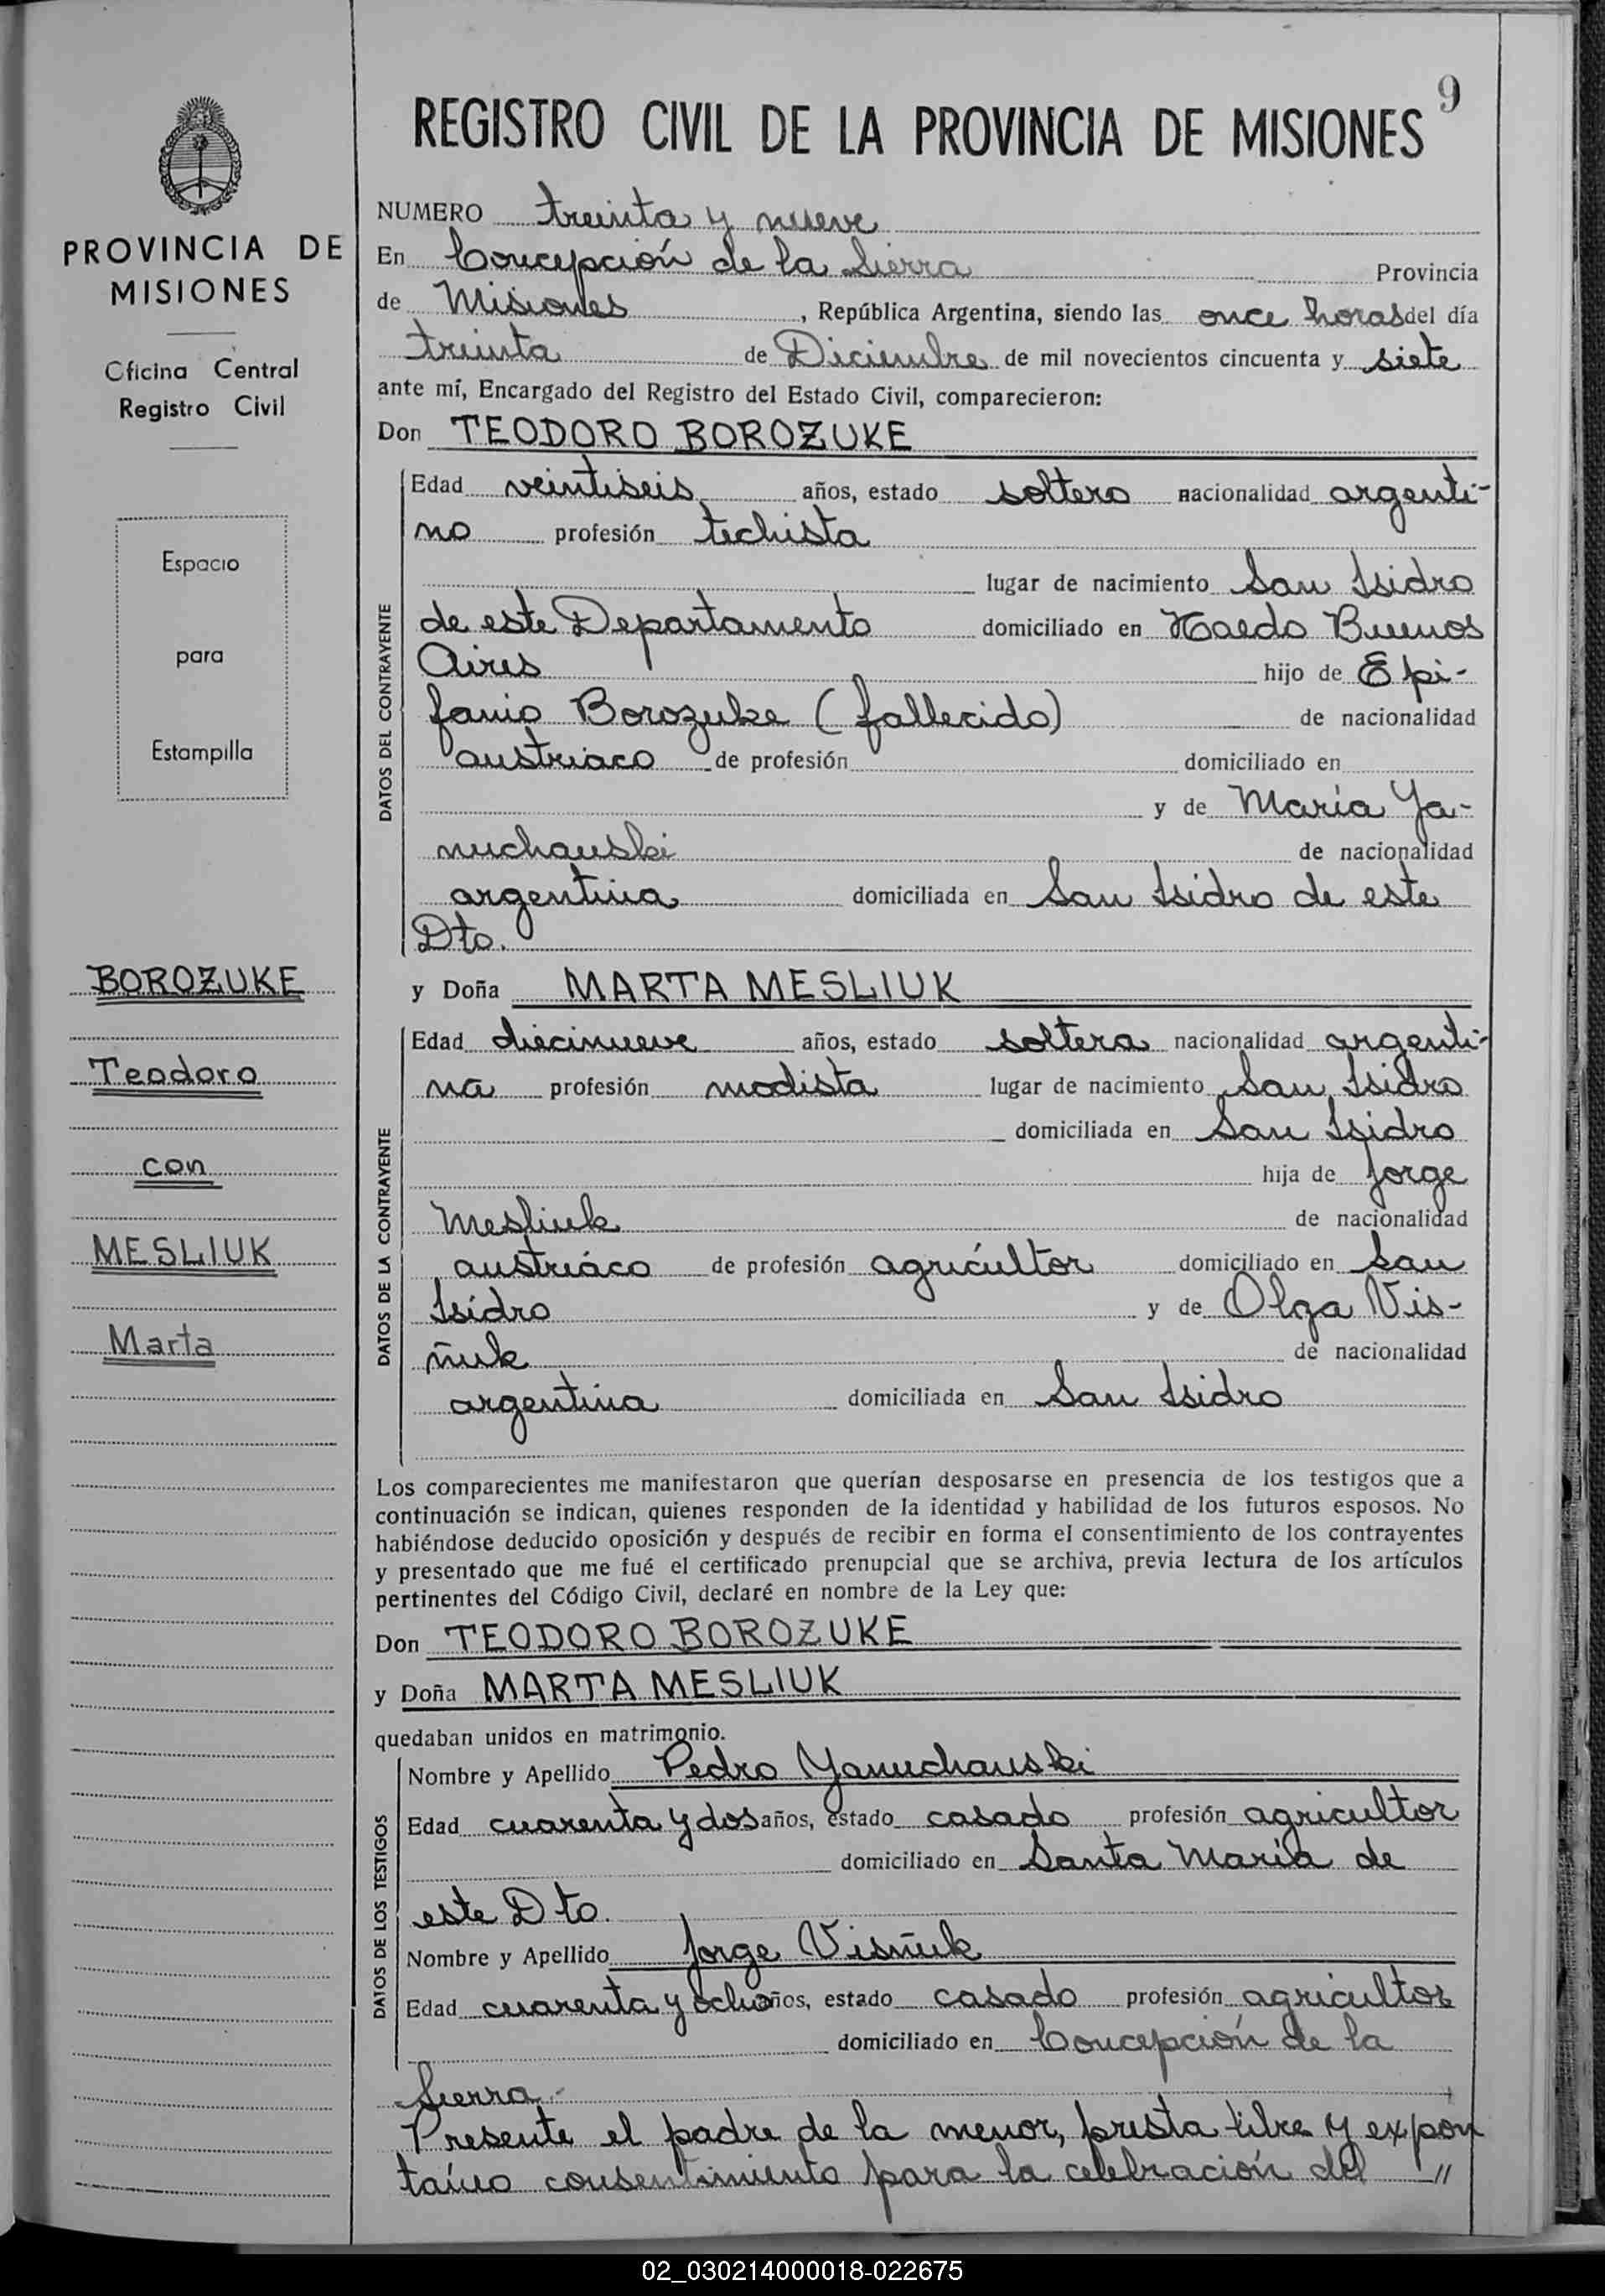 9
REGISTRO CIVIL DE LA PROVINCIA DE MISIONES
PROVINCIA DE
MISIONES
Oficina Central
Registro Civil
Espacio
para
Estampilla
BOROZUKE
Teodoro
con
MESLIUK
Marta
NUMERO treinta y nueve
En Concepción de la Sierra Provincia
de Misiones, República Argentina, siendo las once horas del día
treinta de Diciembre de mil novecientos cincuenta y siete
ante mí, Encargado del Registro del Estado Civil, comparecieron:
Don TEODORO BOROZUKE
DATOS DEL CONTRAYENTE
Edad veintiseis años, estado soltero nacionalidad argenti-
no profesión techista
lugar de nacimiento San Isidro
de este Departamento domiciliado en Haedo Buenos
Aires hijo de Epi-
fanio Borozuke (fallecido) de nacionalidad
austriaco de profesión domiciliado en
y de María Ya-
nuchauski de nacionalidad
argentina domiciliada en San Isidro de este
Dto.
y Doña MARTA MESLIUK
DATOS DE LA CONTRAYENTE
Edad diecinueve años, estado soltera nacionalidad argenti-
na profesión modista lugar de nacimiento San Isidro
domiciliada en San Isidro
hija de Jorge
Mesliuk de nacionalidad
austriáco de profesión agricultor domiciliado en San
Isidro y de Olga Vis-
ñuk de nacionalidad
argentina domiciliada en San Isidro
Los comparecientes me manifestaron que querían desposarse en presencia de los testigos que a
continuación se indican, quienes responden de la identidad y habilidad de los futuros esposos. No
habiéndose deducido oposición y después de recibir en forma el consentimiento de los contrayentes
y presentado que me fué el certificado prenupcial que se archiva, previa lectura de los artículos
pertinentes del Código Civil, declaré en nombre de la Ley que:
Don TEODORO BOROZUKE
y Doña MARTA MESLIUK
quedaban unidos en matrimonio.
DATOS DE LOS TESTIGOS
Nombre y Apellido Pedro Yanuchauski
Edad cuarenta y dos años, estado casado profesión agricultor
domiciliado en Santa María de
este Dto.
Nombre y Apellido Jorge Visñuk
Edad cuarenta y ocho años, estado casado profesión agricultor
domiciliado en Concepción de la
Sierra.-
Presente el padre de la menor, presta libre y expon
taíneo consentimiento para la celebración del "
02_030214000018-022675